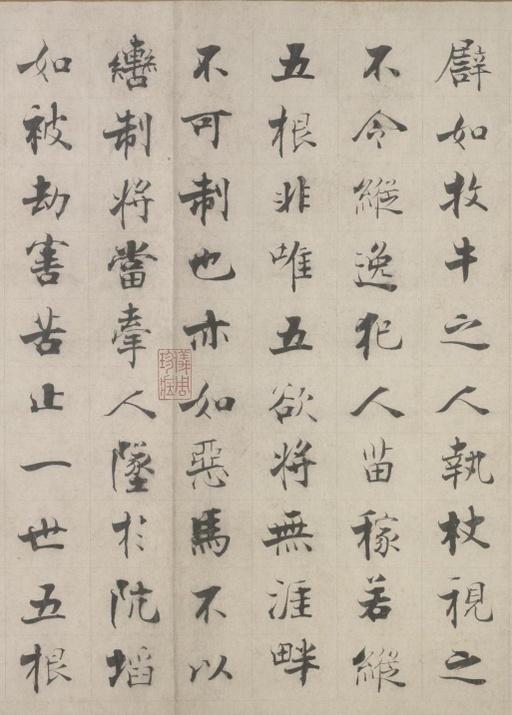 譬如牧牛之人執杖視之
不令縱逸犯人苗稼若縱
五根非唯五欲將無涯畔
不可制也亦如惡馬不以
轡制將當牽人墜於阬埳
如被劫害苦止一世五根
儀周珍藏